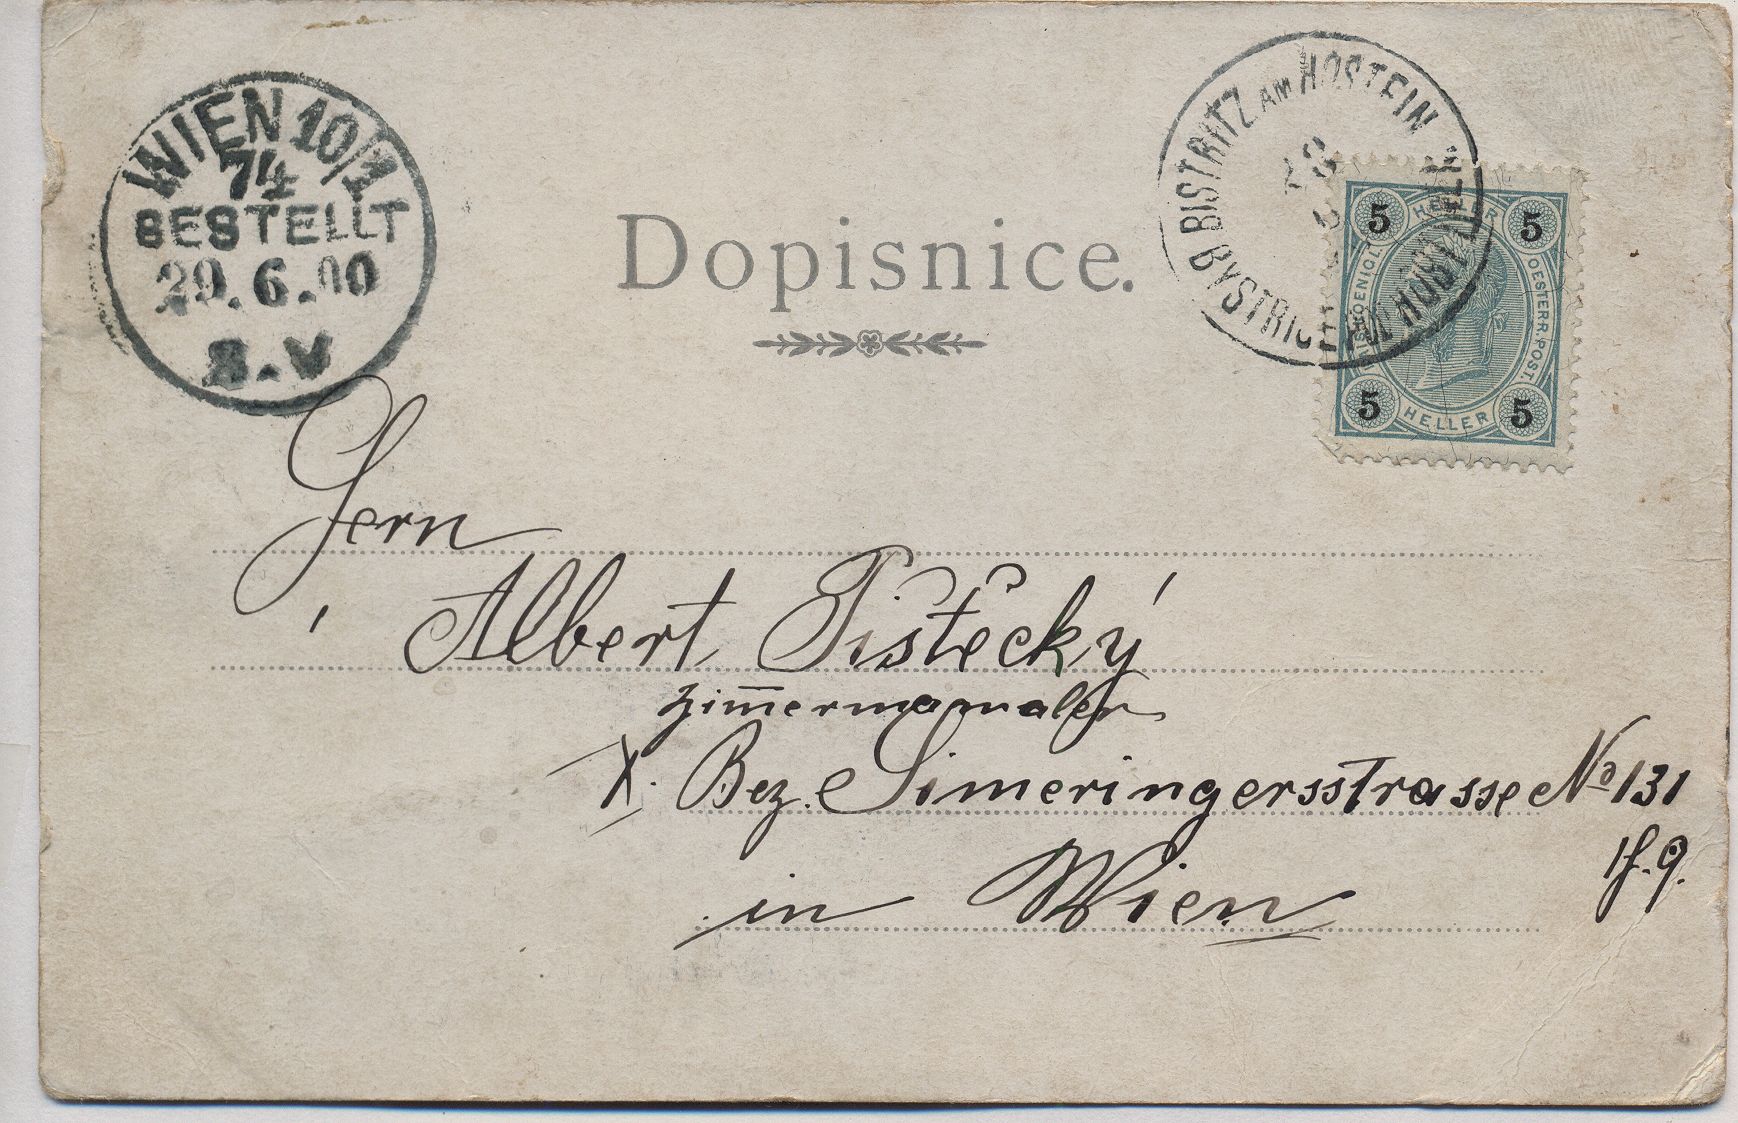 WIEN 10/1
74
BESTELLT
29.6.00
8.V
Dopisnice.
BISTRITZ AM HOSTEIN
BYSTRICE POD HOST
5 HELLER 5
OESTERR. POST.
5 HELLER 5
Hern
Albert Tištěcký
Zim̅ermamaler
X. Bez. Simeringersstrasse No 131
in Wien